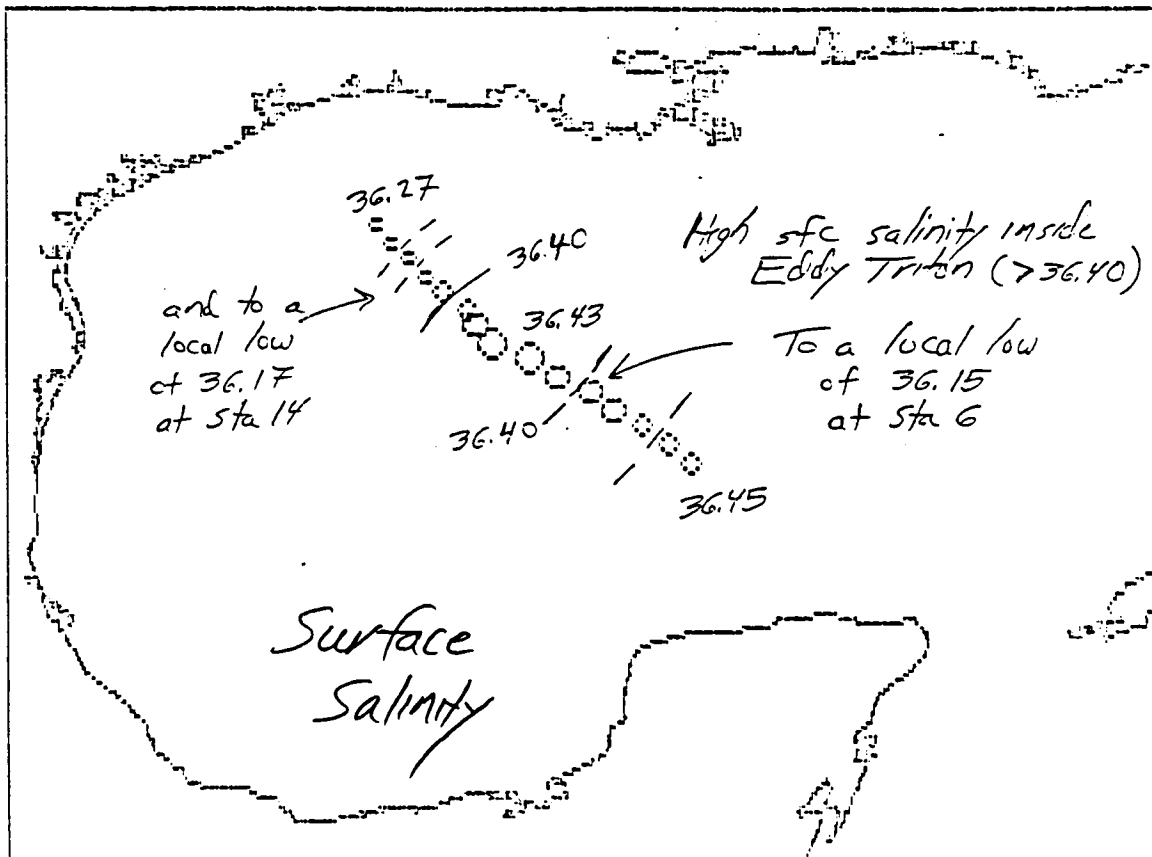 36.27
36.40
High sfc salinity inside
Eddy Triton (>36.40)
and to a
local low
of 36.17
at sta 14
36.43
To a local low
of 36.15
at sta 6
36.40
36.45
Surface
Salinity